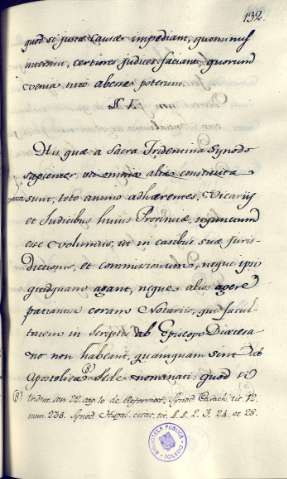 132.
quod si justæ causæ impediant, quominus
intersint, certiores judices faciant, quorum
venia non abesse poterunt.
§. 1.
His quæ a Sacra Tridentina Synodo
sapienter, ut omnia alia constituta
sunt, toto animo adherentes, Vicariis
et Judicibus huius Provinciæ, injunctum
esse volumus, ut in casibus suæ juris-
dictionis, et commissionum, neque ipsi
quidquam agant, neque alios agere
patiantur coram Notariis, qui facul-
tatem in scriptis ab Episcopo Dioecesa
no non habent, quamquam sint ab
Apostolica Sede nominati: quod si
Trident. 22. cap. 10 de Reformat. Synod. tit. 12
num. 238. Synod. L. 2. 24. et 28.
BIBLIOTECA PUBLICA